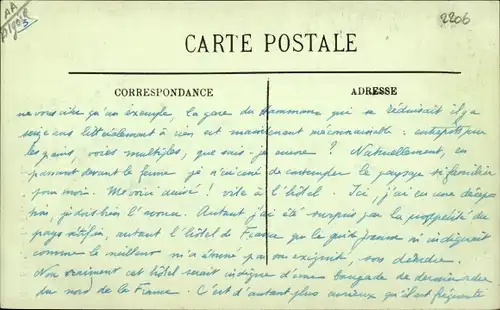 AA
Algérie
5
2206
CARTE POSTALE
CORRESPONDANCE
ADRESSE
ne vous citer qu'un exemple, la gare du Hammam qui se réduisait il y a
seize ans littéralement à rien est maintenant méconnaissable : entrepôts pour
les grains, voies multiples, que sais-je encore ? Naturellement, en
passant devant la ferme je n'ai cessé de contempler le paysage si familier
pour moi. Me voici arrivé ! vite à l'hôtel. Ici, j'ai eu une décep
tion, je dois bien l'avouer. Autant j'ai été surpris par la prospérité du
pays, autant l'hôtel de France que le guide Joanne m'indiquait
comme le meilleur m'a étonné par son exiguité, son désordre.
Non vraiment cet hôtel serait indigne d'une bourgade de dernier ordre
du nord de la France. C'est d'autant plus curieux qu'il est fréquenté